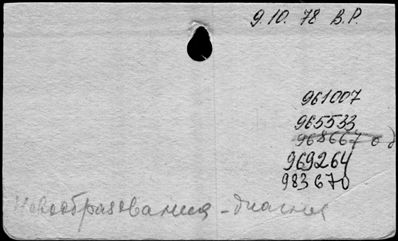 9.10.78 В.Р.
961007
965533
968667 о д
969264
983670
Новообразования - диагно